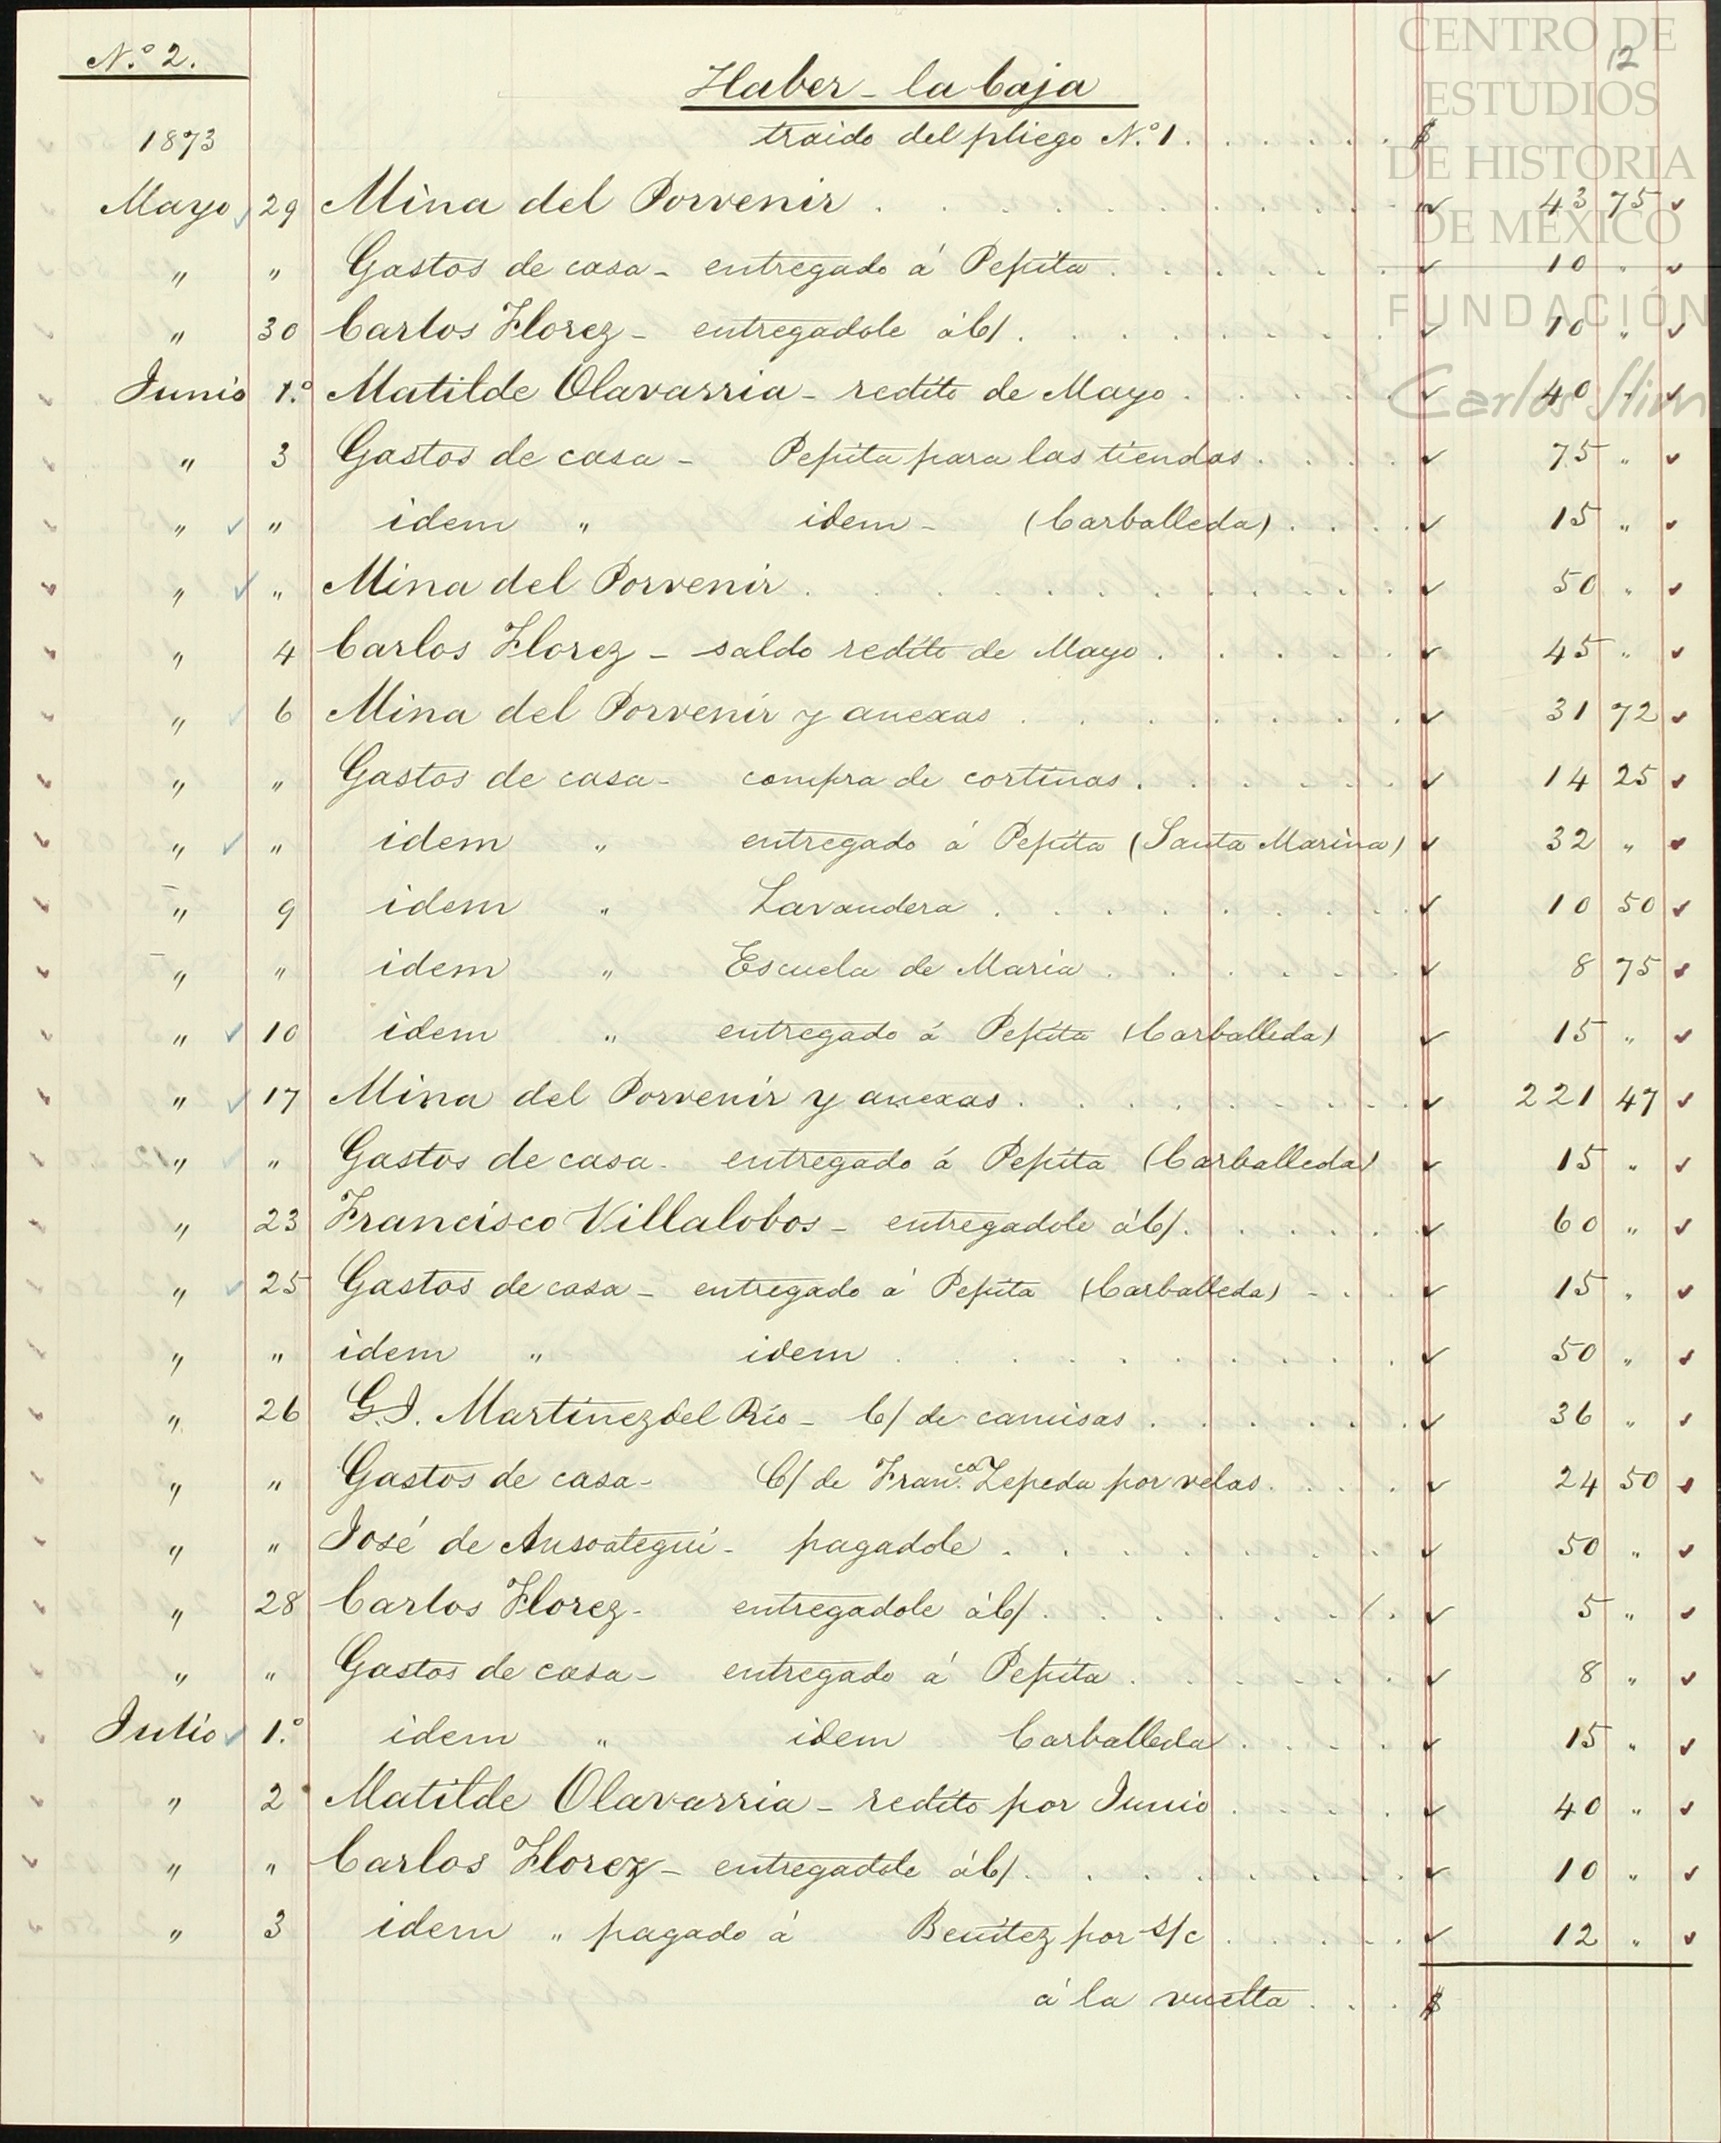 N.º 2.
12
Haber - la Caja
1873 traido del pliego N.º 1 . . . . . $
Mayo 29 Mina del Porvenir . . . . . 43 75
" " Gastos de casa - entregado á Pepita . . . . . 10 "
" 30 Carlos Florez - entregadole á C/ . . . . . 10 "
Junio 1.º Matilde Olavarria - redito de Mayo . . . . . 40 "
" 3 Gastos de casa - Pepita para las tiendas . . . . . 75 "
" " idem " idem - (Carballeda) . . . . 15 "
" " Mina del Porvenir . . . . . 50 "
" 4 Carlos Florez - saldo redito de Mayo . . . . . 45 "
" 6 Mina del Porvenir y anexas . . . . . 31 72
" " Gastos de casa - compra de cortinas . . . . . 14 25
" " idem " entregado á Pepita (Santa Marina) 32 "
" 9 idem " Lavandera . . . . . 10 50
" " idem " Escuela de Maria . . . . . 8 75
" 10 idem " entregado á Pepita (Carballeda) 15 "
" 17 Mina del Porvenir y anexas . . . . . 221 47
" " Gastos de casa - entregado á Pepita (Carballeda) 15 "
" 23 Francisco Villalobos - entregadole á C/ . . . . . 60 "
" 25 Gastos de casa - entregado á Pepita (Carballeda) - . . 15 "
" " idem " idem . . . . . 50 "
" 26 G. I. Martinez del Rio - C/ de camisas . . . . . 36 "
" " Gastos de casa - C/ de Fran.co Zepeda por velas . . . . 24 50
" " José de Ansoategui - pagadole . . . . . 50 "
" 28 Carlos Florez - entregadole á C/ . . . . . 5 "
" " Gastos de casa - entregado á Pepita . . . . . 8 "
Julio 1.º idem " idem Carballeda . . . . 15 "
" 2 Matilde Olavarria - redito por Junio . . . . 40 "
" " Carlos Florez - entregadole á C/ . . . . . 10 "
" 3 idem " pagado á Benitez por s/c . . . . . 12 "
á la vuelta . . . $
CENTRO DE
ESTUDIOS
DE HISTORIA
DE MÉXICO
FUNDACIÓN
Carlos Slim